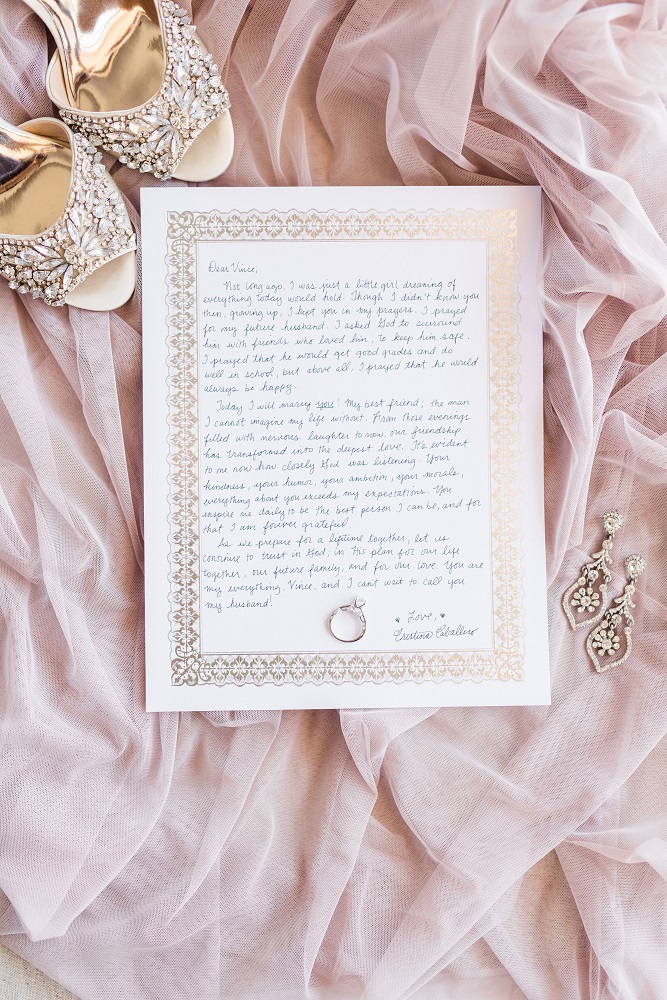 Dear Vince,
Not long ago, I was just a little girl dreaming of
everything today would hold. Though I didn't know you
then, growing up, I kept you in my prayers. I prayed
for my future husband. I asked God to surround
him with friends who loved him, to keep him safe.
I prayed that he would get good grades and do
well in school, but above all, I prayed that he would
always be happy.
Today I will marry you! My best friend; the man
I cannot imagine my life without. From those evenings
filled with nervous laughter to now, our friendship
has transformed into the deepest love. It's evident
to me now how closely God was listening. Your
kindness, your humor, your ambition, your morals,
everything about you exceeds my expectations. You
inspire me daily to be the best person I can be, and for
that I am forever grateful.
As we prepare for a lifetime together, let us
continue to trust in God, in His plan for our life
together, our future family, and for our love. You are
my everything, Vince, and I can't wait to call you
my husband!
♥ Love, ♥
Cristina Caballero